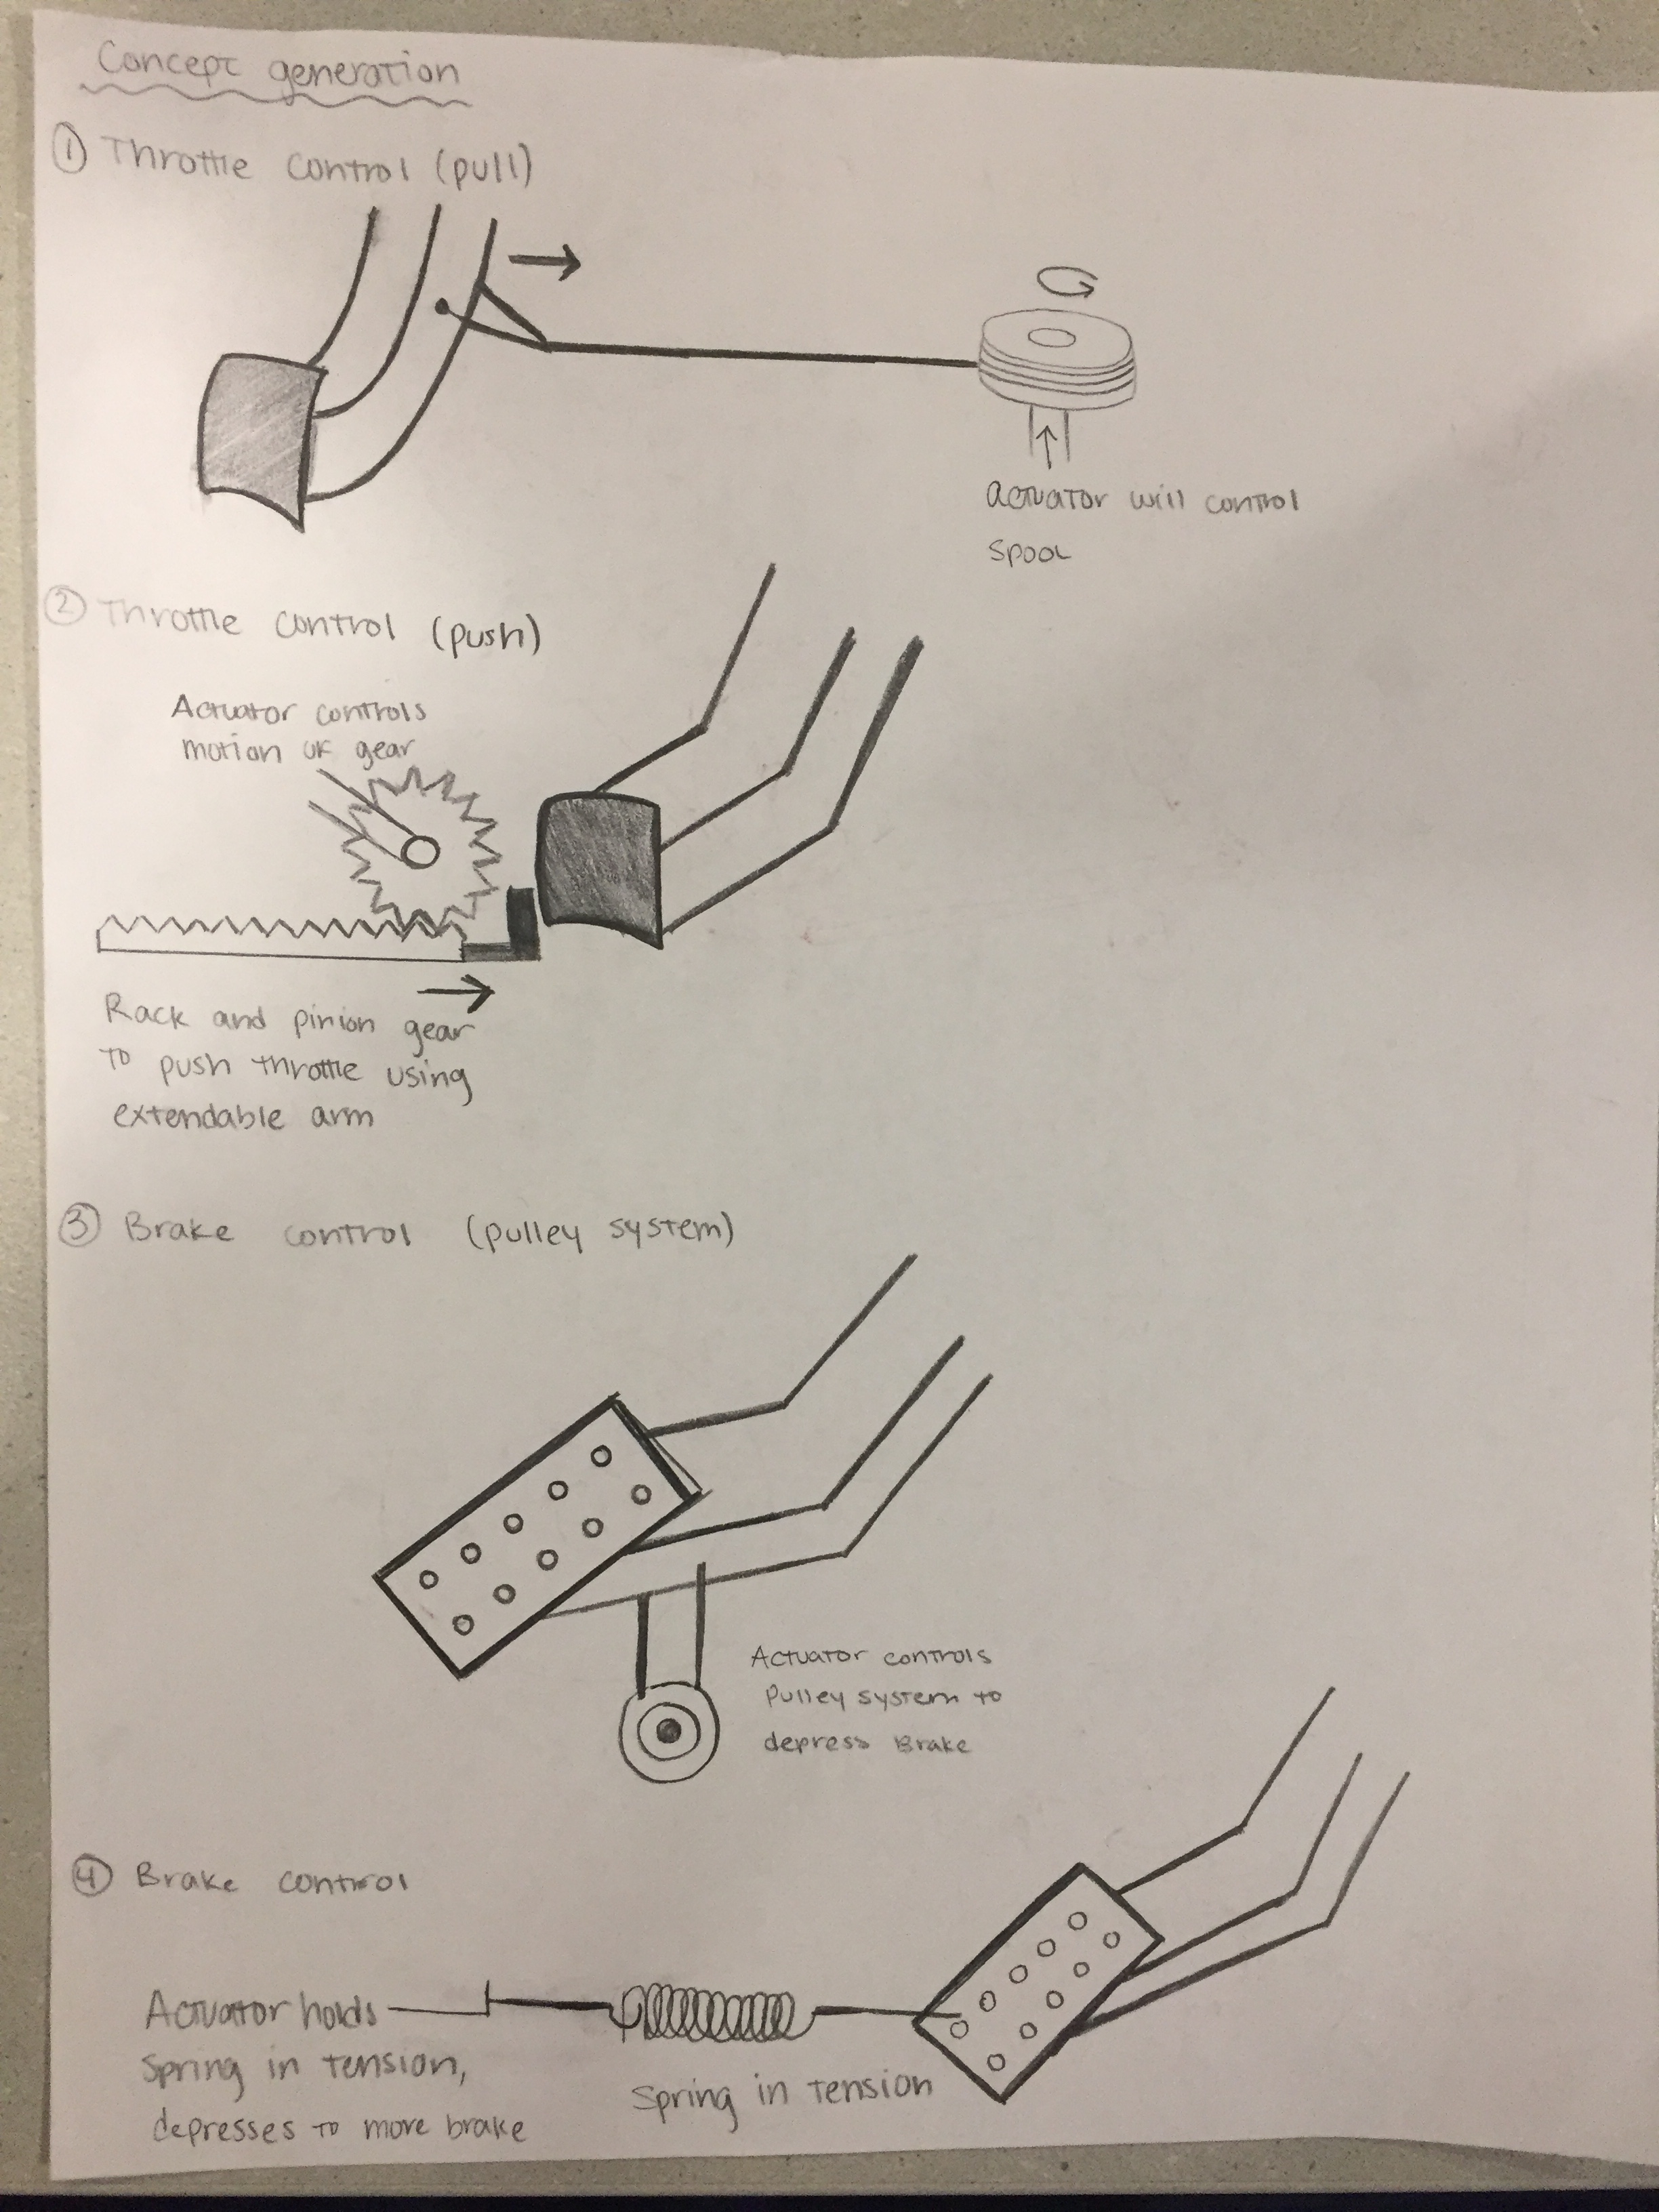 Concept generation
① Throttle control (pull)
actuator will control
spool
② Throttle control (push)
Actuator controls
motion of gear
Rack and pinion gear
to push throttle using
extendable arm
③ Brake control (pulley system)
Actuator controls
Pulley system to
depress Brake
④ Brake control
Actuator holds
spring in tension,
depresses to move brake
Spring in tension